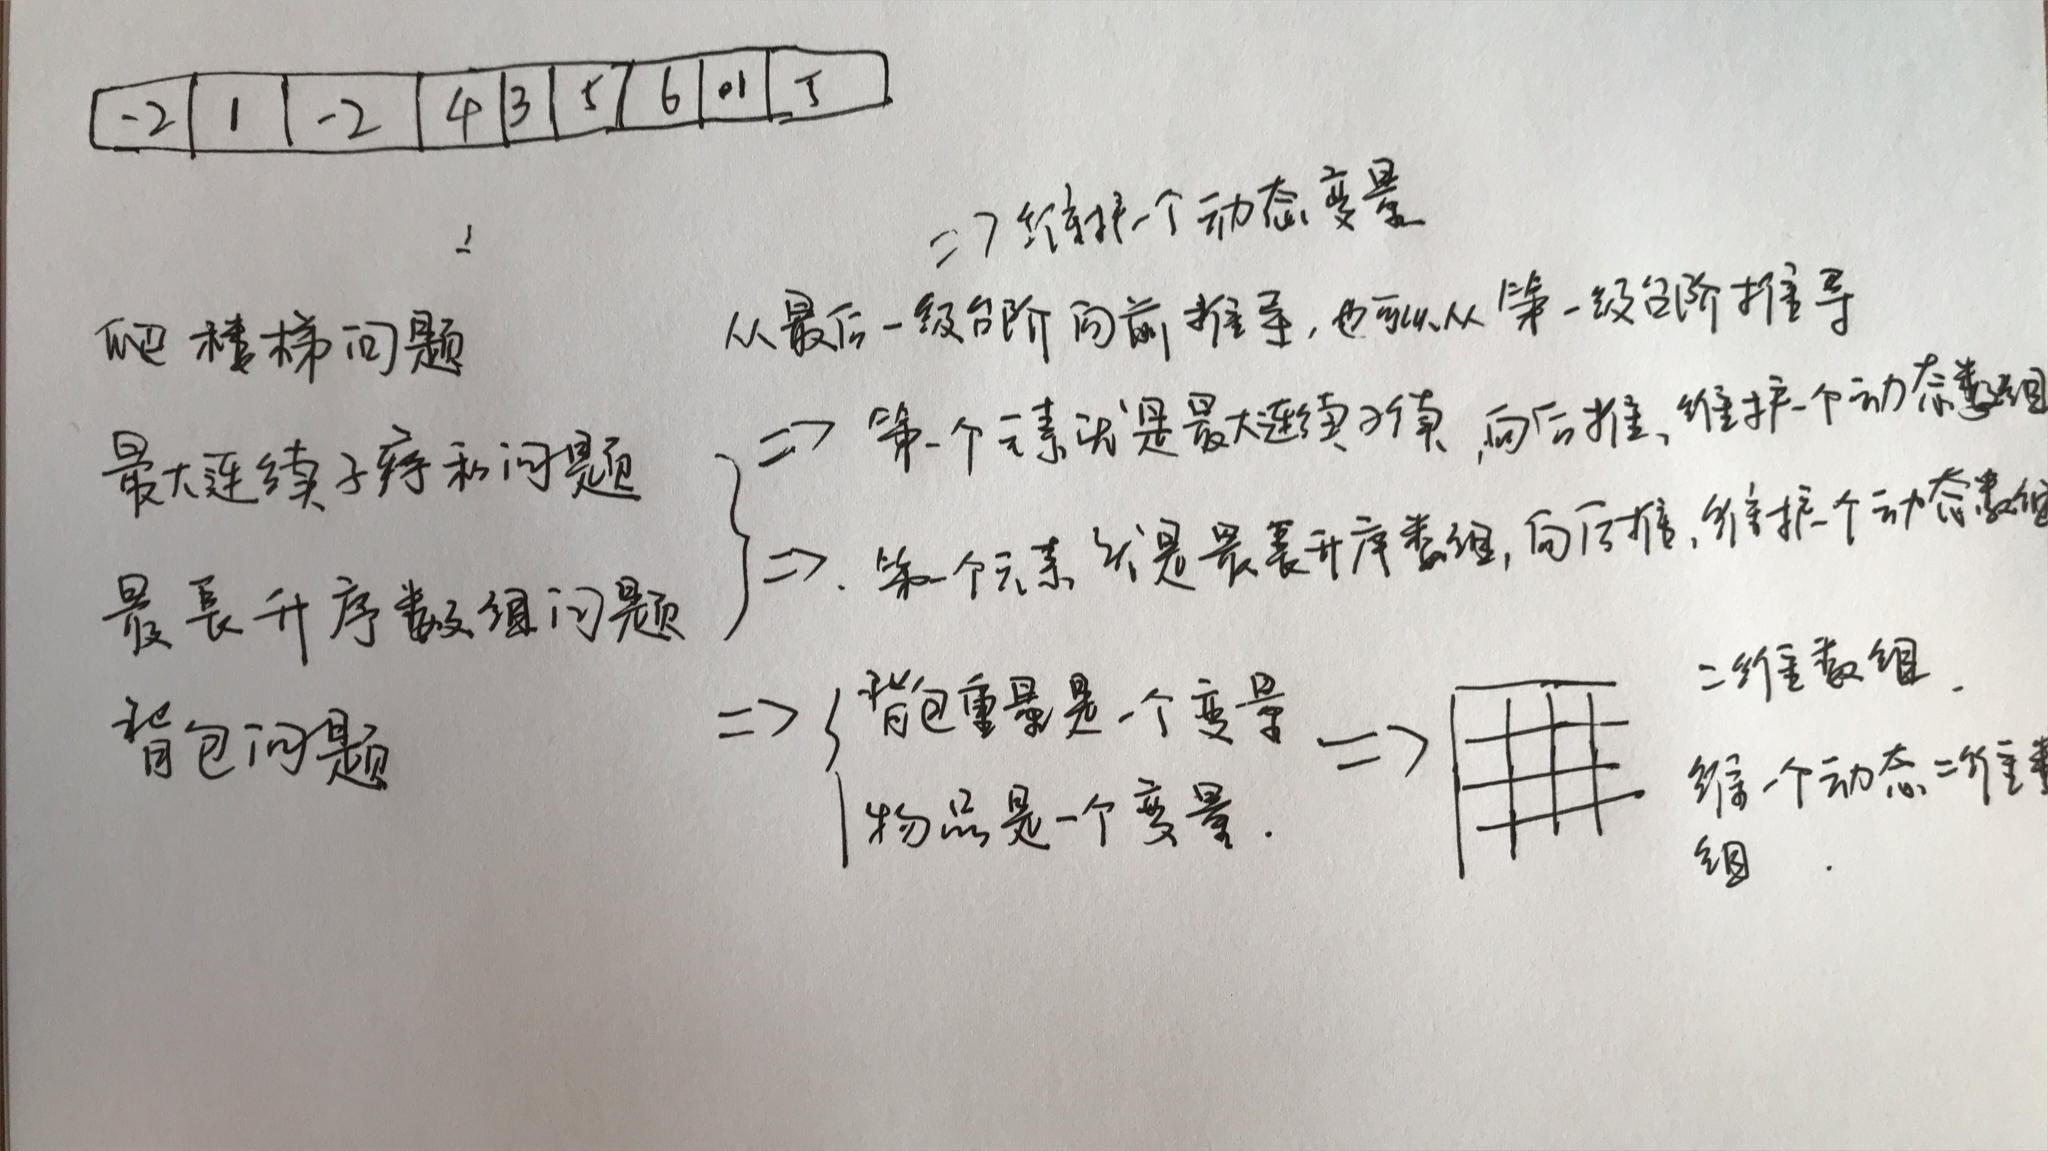 -2 1 -2 4 3 5 6 01 5
=> 维护一个动态变量
爬楼梯问题 从最后一级台阶向前推导,也可以从第一级台阶推导
最大连续子序和问题 => 第一个元素就是最大连续子,向后推、维护一个动态数组
最長升序数组问题 => 第一个元素就是最長升序数组,向后推、维护一个动态数组
背包问题 => 背包重量是一个变量 => 二维数组.
物品是一个变量. 维一个动态二维数
组.